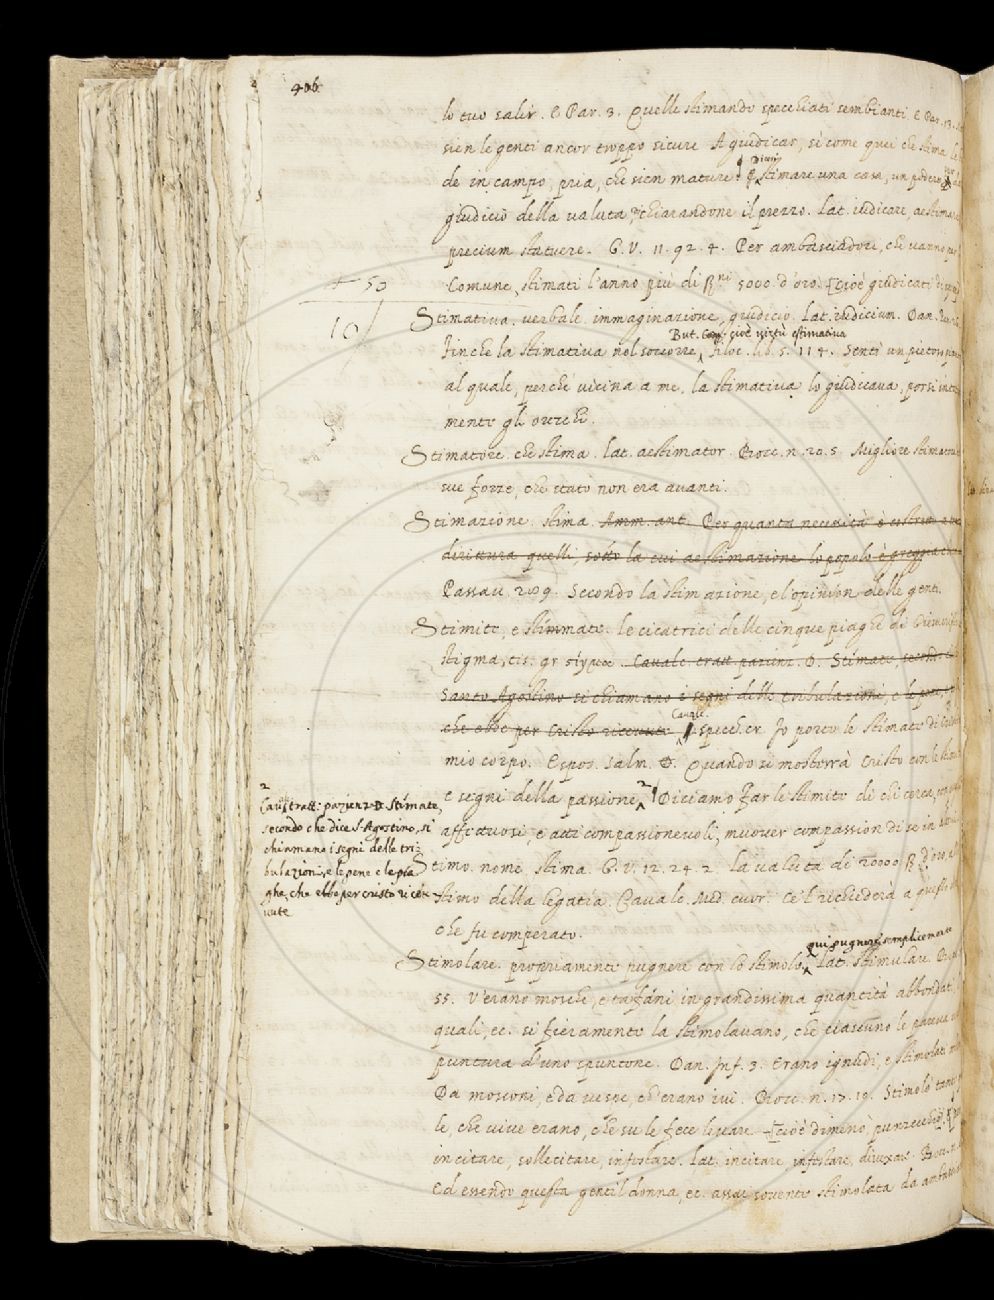 406
lo tuo salir. E Par. 3. Quelle stimando specchiati sembianti E Par. 13.
sien le genti ancor troppo sicure A giudicar, sì come quei che stima le
de in campo, pria, che sien mature. Diciamo stimare una casa, un podere,
giudicio della valuta, dichiarandone il prezzo. Lat. iudicare, aestimare
precium statuere. G. V. 11. 92. 4. Per ambasciadori, che vanno per
Comune, stimati l'anno più di fiⁿⁱ 5000 d'oro. [cioè giudicati
+ 50
10/
Stimativa. verbale. immaginazione, giudicio. Lat. iudicium. Dan.
But. Com. cioè virtù estimativa
Finche la stimativa nol soccorre, Filoc. lib. 5. 114. Sentì un pietoso
al quale, perchè vicina a me, la stimativa lo giudicava, porsi
mente gli orecchi.
Stimatore. che stima. Lat. aestimator. Bocc. n. 20. 5. Migliore stimatore
sue forze, che stato non era avanti.
Stimazione. stima. Amm. ant. Per quanta necisità è costretto
dirittura quelli, sotto la cui aestimazione lo popolo è greggia
Passav. 209. Secondo la stimazione, e l'opinion delle genti.
Stimite, e stimmate. le cicatrici delle cinque piaghe di
stigma, tis. gr. στίγμα. Cavalc. tratt. pazienz. D. Stimate, secondo
Santo Agostino si chiamano i segni delle tribulazioni, e le pene,
che ebbe per Cristo ricevute Cavalc. Specch. cr. Io porto le stimate di
mio corpo. Espos. Salm. D. Quando si mosterrà Cristo con le
e segni della passione. 2 Diciamo Far le stimite di chi cerca,
affettuosi, e atti compassionevoli, muover compassion di se in
2
Caual. tratt: pazienz D Stimate,
secondo che dice S. Agostino, si
chiamano i segni delle tri-
bulazioni, e le pene e le pia-
ghe, che ebbe per cristo rice-
vute
Stimo. nome. stima. G. V. 12. 24. 2. La valuta di 20000 d'oro,
stimo della legatia. Cavalc. Med. cuor. Ce l richiederà a questo
che fu comperato.
qui pugnere semplicemente
Stimolare. propriamente pugnere con lo stimolo, Lat. stimulare.
55. V'erano mosche, e tafani in grandissima quantità abbondati,
quali, ec. sì fieramente la stimolavano, che ciascuno le pareva
puntura d'uno spuntone. Dan. Inf. 3. Erano ignudi, e stimolati
Da mosconi, e da vespe, ch'erano ivi. Bocc. n. 17. 19. Stimolò tanto
le, che vive erano, che su le fece levare. [cioè dimenò, punzecchiò.
incitare, sollecitare, infestare. Lat. incitare, infestare, divexare. Bocc.
Ed essendo questa gentil donna, ec. assai sovente stimolata da